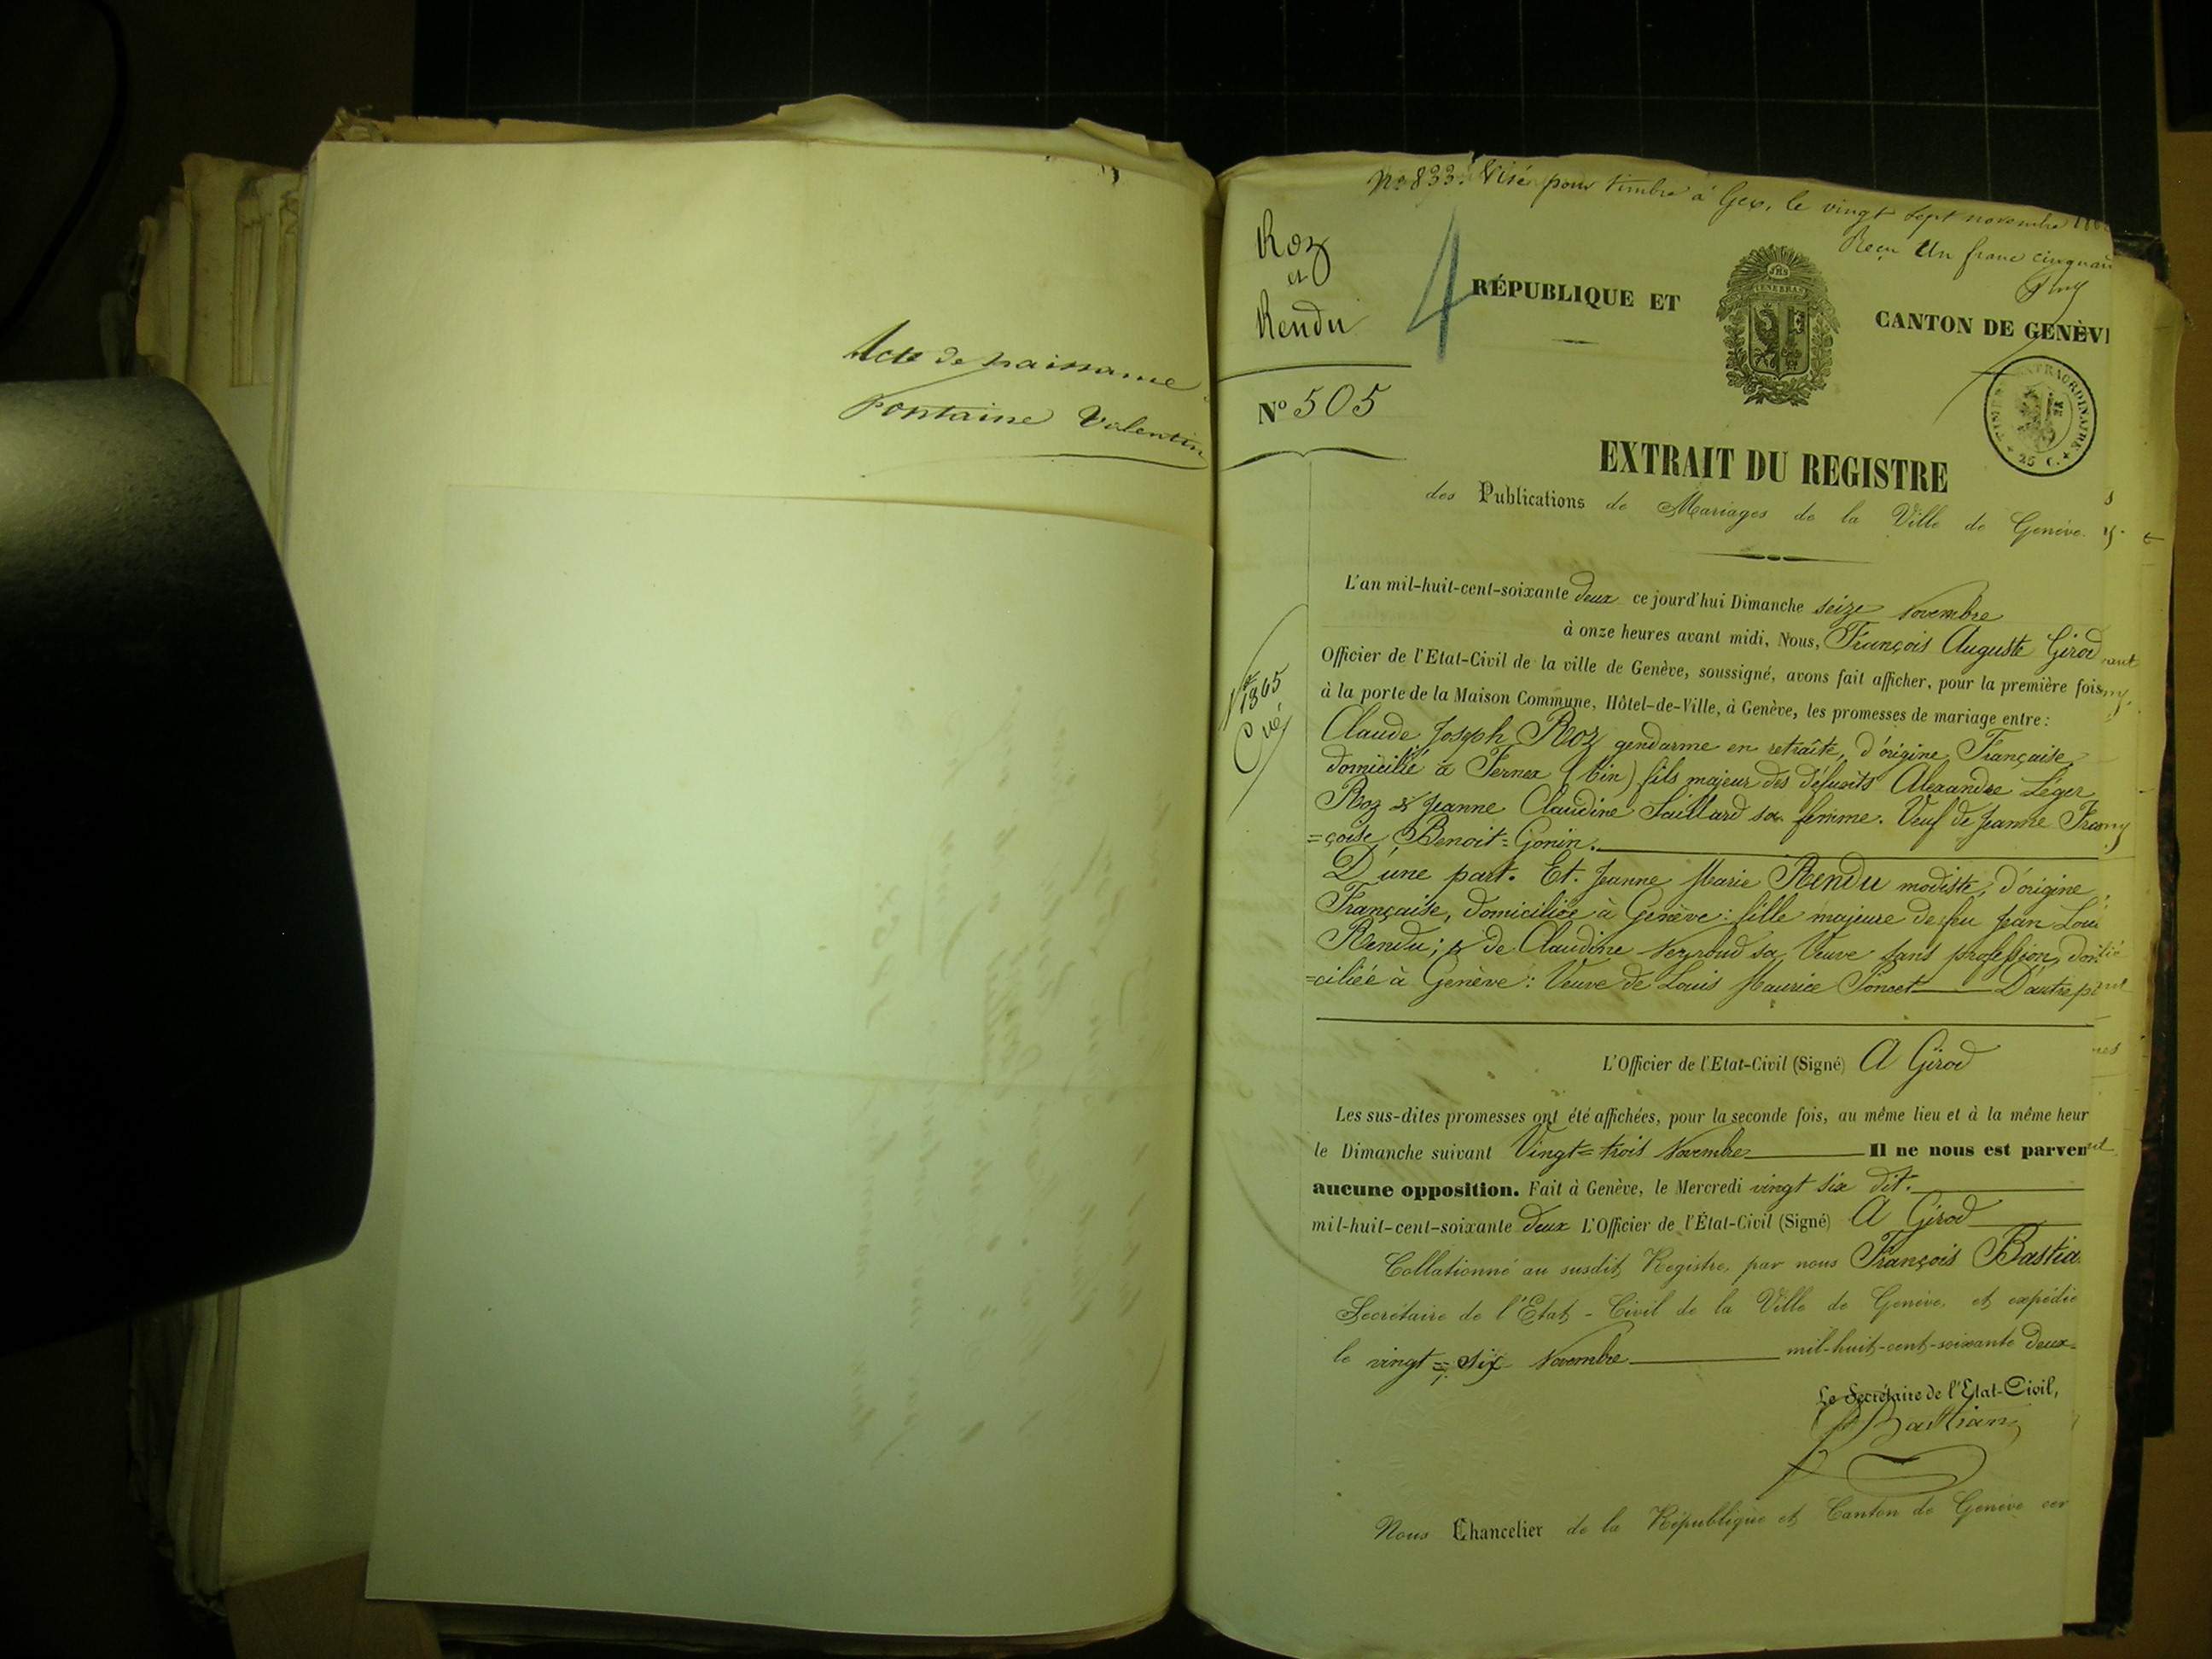 Acte de naissance
Fontaine Valentin
No 833. Visé pour timbre à Gex, le vingt sept novembre
Reçu Un franc cinquan
Roz
et
Rendu
4
RÉPUBLIQUE ET CANTON DE GENÈV
No 505
TIMBRE EXTRAORDINAIRE
25 C.
EXTRAIT DU REGISTRE
des Publications de Mariages de la Ville de Genève.
L'an mil-huit-cent-soixante deux ce jourd'hui Dimanche seize Novembre
à onze heures avant midi, Nous, François Auguste Girod
Officier de l'Etat-Civil de la ville de Genève, soussigné, avons fait afficher, pour la première fois,
à la porte de la Maison Commune, Hôtel-de-Ville, à Genève, les promesses de mariage entre:
Claude Joseph Roz gendarme en retraite, d'origine Française,
domicilié à Fernex (Ain) fils majeur des défunts Alexandre Léger
Roz & Jeanne Claudine Saillard sa femme. Veuf de Jeanne Fran
=çoise Benoit=Gonin.
D'une part. Et. Jeanne Marie Rendu modiste, d'origine
Française, domiciliée à Genève: fille majeure de feu Jean Loui
Rendu; & de Claudine Neyroud sa Veuve sans profession, dom
=ciliée à Genève: Veuve de Louis Maurice Poncet D'autre p
L'Officier de l'Etat-Civil (Signé) A Girod
Les sus-dites promesses ont été affichées, pour la seconde fois, au même lieu et à la même heur
le Dimanche suivant Vingt=trois Novembre Il ne nous est parven
aucune opposition. Fait à Genève, le Mercredi vingt six dit.
mil-huit-cent-soixante deux L'Officier de l'État-Civil (Signé) A Girod
Collationné au susdit Registre, par nous François Bastia
Secrétaire de l'Etat-Civil de la Ville de Genève, et expédié
le vingt=six Novembre mil-huit-cent-soixante deux
Le Secrétaire de l'Etat-Civil,
F Bastian
Nous Chancelier de la République et Canton de Genève cer